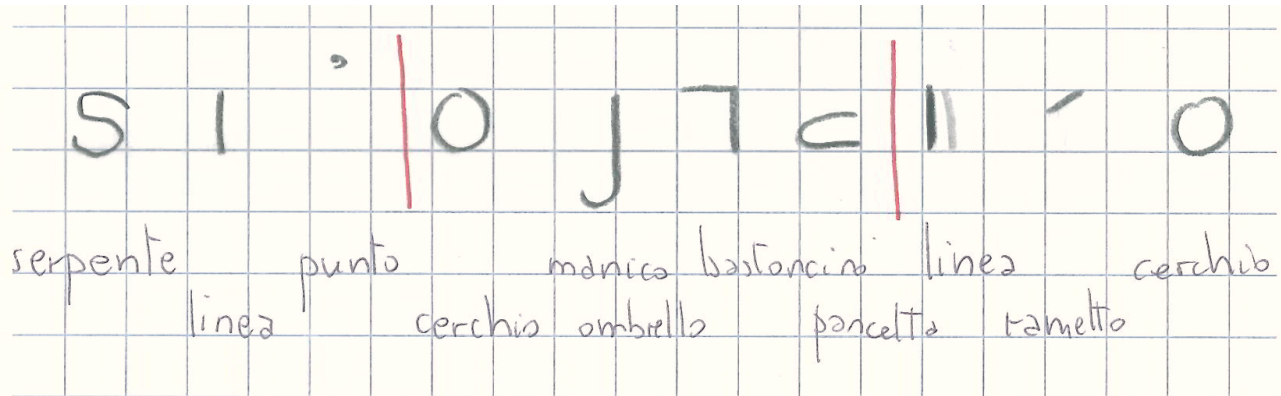 serpente punto manico bastoncino linea cerchio
linea cerchio ombrello pancetta rametto